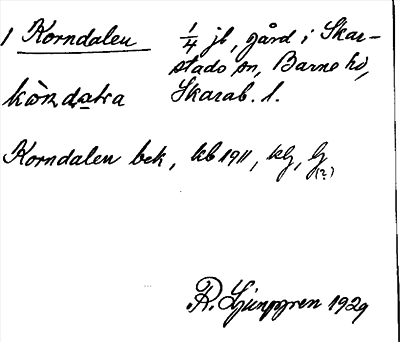 1 Korndalen 1/4 jb, gård i Skar-
stads sn, Barne hd,
kòrndaɬa Skarab. l.
Korndalen bek, kb 1911, kG, G
(?)
R. Ljunggren 1929